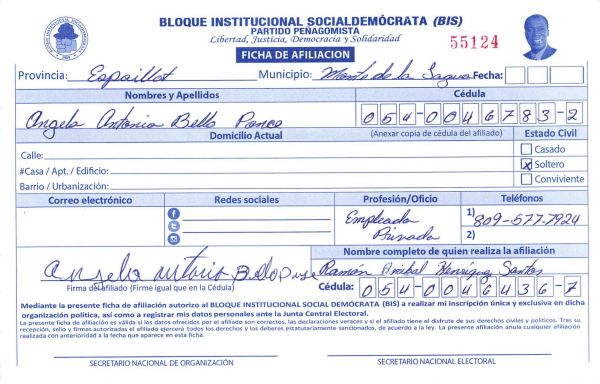 BLOQUE INSTITUCIONAL SOCIALDEMÓCRATA (BIS)
PARTIDO PEÑAGOMISTA
Libertad, Justicia, Democracia y Solidaridad
FICHA DE AFILIACION
55124
Provincia: Espaillat Municipio: Monte de la Jagua Fecha:
Nombres y Apellidos Cédula
Angela Antonia Bello Ponce 054-0046783-2
Domicilio Actual (Anexar copia de cédula del afiliado) Estado Civil
Calle: Casado
#Casa / Apt. / Edificio: X Soltero
Barrio / Urbanización: Conviviente
Correo electrónico Redes sociales Profesión/Oficio Teléfonos
Empleada Privada 1) 809-577-7924
2)
Nombre completo de quien realiza la afiliación
Angela Antonia Bello Ramón Anibal Henriquez Santos
Firma del afiliado (Firme igual que en la Cédula) Cédula: 054-0046436-7
Mediante la presente ficha de afiliación autorizo al BLOQUE INSTITUCIONAL SOCIAL DEMÓCRATA (BIS) a realizar mi inscripción única y exclusiva en dicha
organización política, así como a registrar mis datos personales ante la Junta Central Electoral.
La presente ficha de afiliación es válida si los datos ofrecidos por el afiliado son correctos, las declaraciones veraces y si el afiliado tiene el disfrute de sus derechos civiles y políticos. Tras su
recepción, sello y firmas autorizadas el afiliado ejercerá todos los derechos y los deberes estatutariamente sancionados, de acuerdo a la ley. La presente afiliación anula cualquier afiliación
realizada con anterioridad a la fecha que aparece en esta ficha.
SECRETARIO NACIONAL DE ORGANIZACIÓN SECRETARIO NACIONAL ELECTORAL